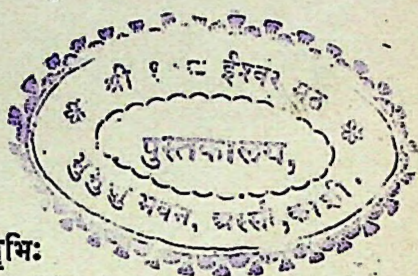 श्री १०८ ईश्वर मठ
पुस्तकालय,
मुमुक्षु भवन, अस्सी, काशी.
भिः